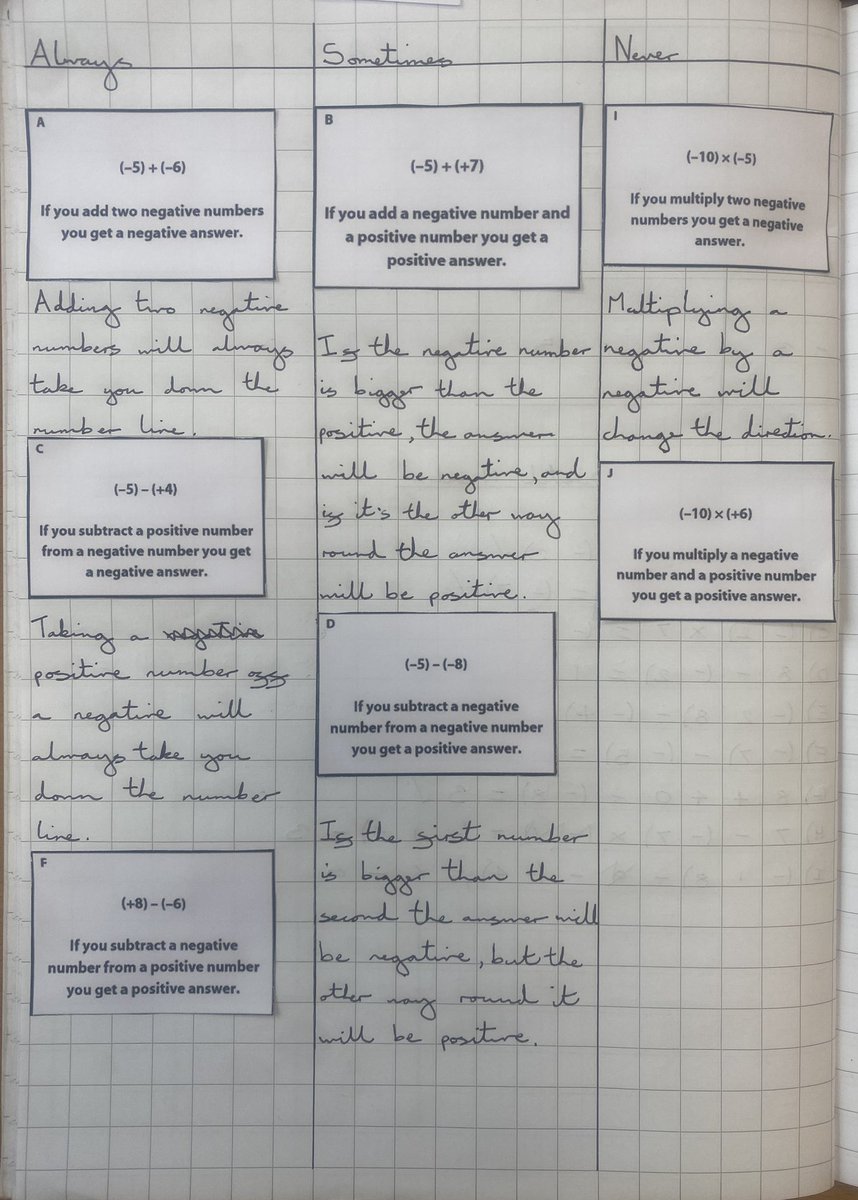 Always
A
(–5) + (–6)
If you add two negative numbers
you get a negative answer.
Adding two negative
numbers will always
take you down the
number line.
C
(–5) – (+4)
If you subtract a positive number
from a negative number you get
a negative answer.
Taking a negative
positive number off
a negative will
always take you
down the number
line.
F
(+8) – (–6)
If you subtract a negative
number from a positive number
you get a positive answer.
Sometimes
B
(–5) + (+7)
If you add a negative number and
a positive number you get a
positive answer.
If the negative number
is bigger than the
positive, the answer
will be negative, and
if it's the other way
round the answer
will be positive.
D
(–5) – (–8)
If you subtract a negative
number from a negative number
you get a positive answer.
If the first number
is bigger than the
second the answer will
be negative, but the
other way round it
will be positive.
Never
I
(–10) × (–5)
If you multiply two negative
numbers you get a negative
answer.
Multiplying a
negative by a
negative will
change the direction.
J
(–10) × (+6)
If you multiply a negative
number and a positive number
you get a positive answer.